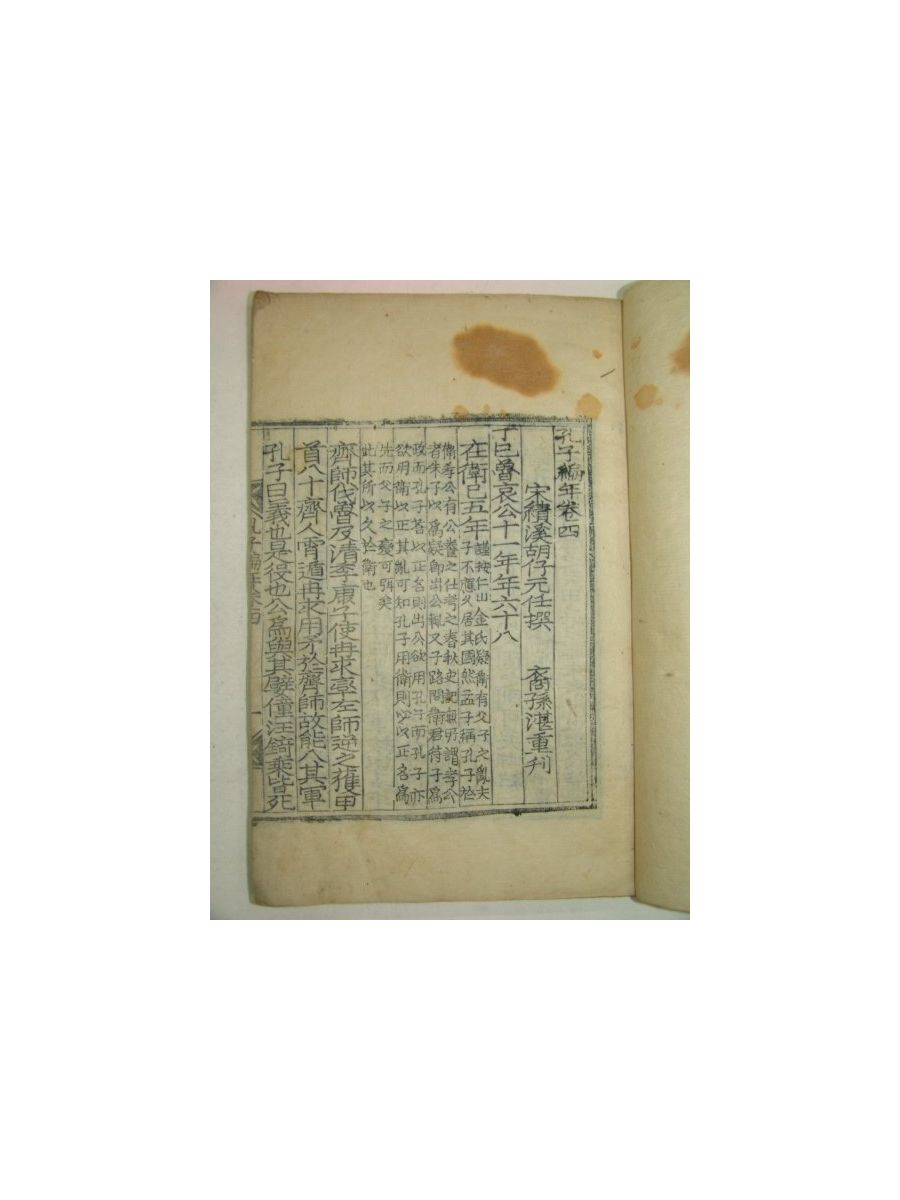 孔子編年卷四
宋績溪胡仔元任撰 裔孫湛重刊
丁巳魯哀公十一年年六十八
在衛已五年
謹按仁山金氏疑衛有父子之亂夫
子不應久居其國然孟子稱孔子於
衛孝公有公養之仕考之春秋史記無所謂孝公
者朱子以爲疑卽出公輒又子路問衛君待子爲
政而孔子荅以正名則出公欲用孔子而孔子亦
欲用衛以正其亂可知孔子用衛則必以正名爲
先而父子之變可弭矣
此其所以久於衛也
齊師伐魯及清季康子使冉求率左師逆之獲甲
首八十齊人宵遁冉求用矛於齊師故能入其軍
孔子曰義也是役也公爲與其嬖僮汪錡乘皆死
孔子編年卷四 一